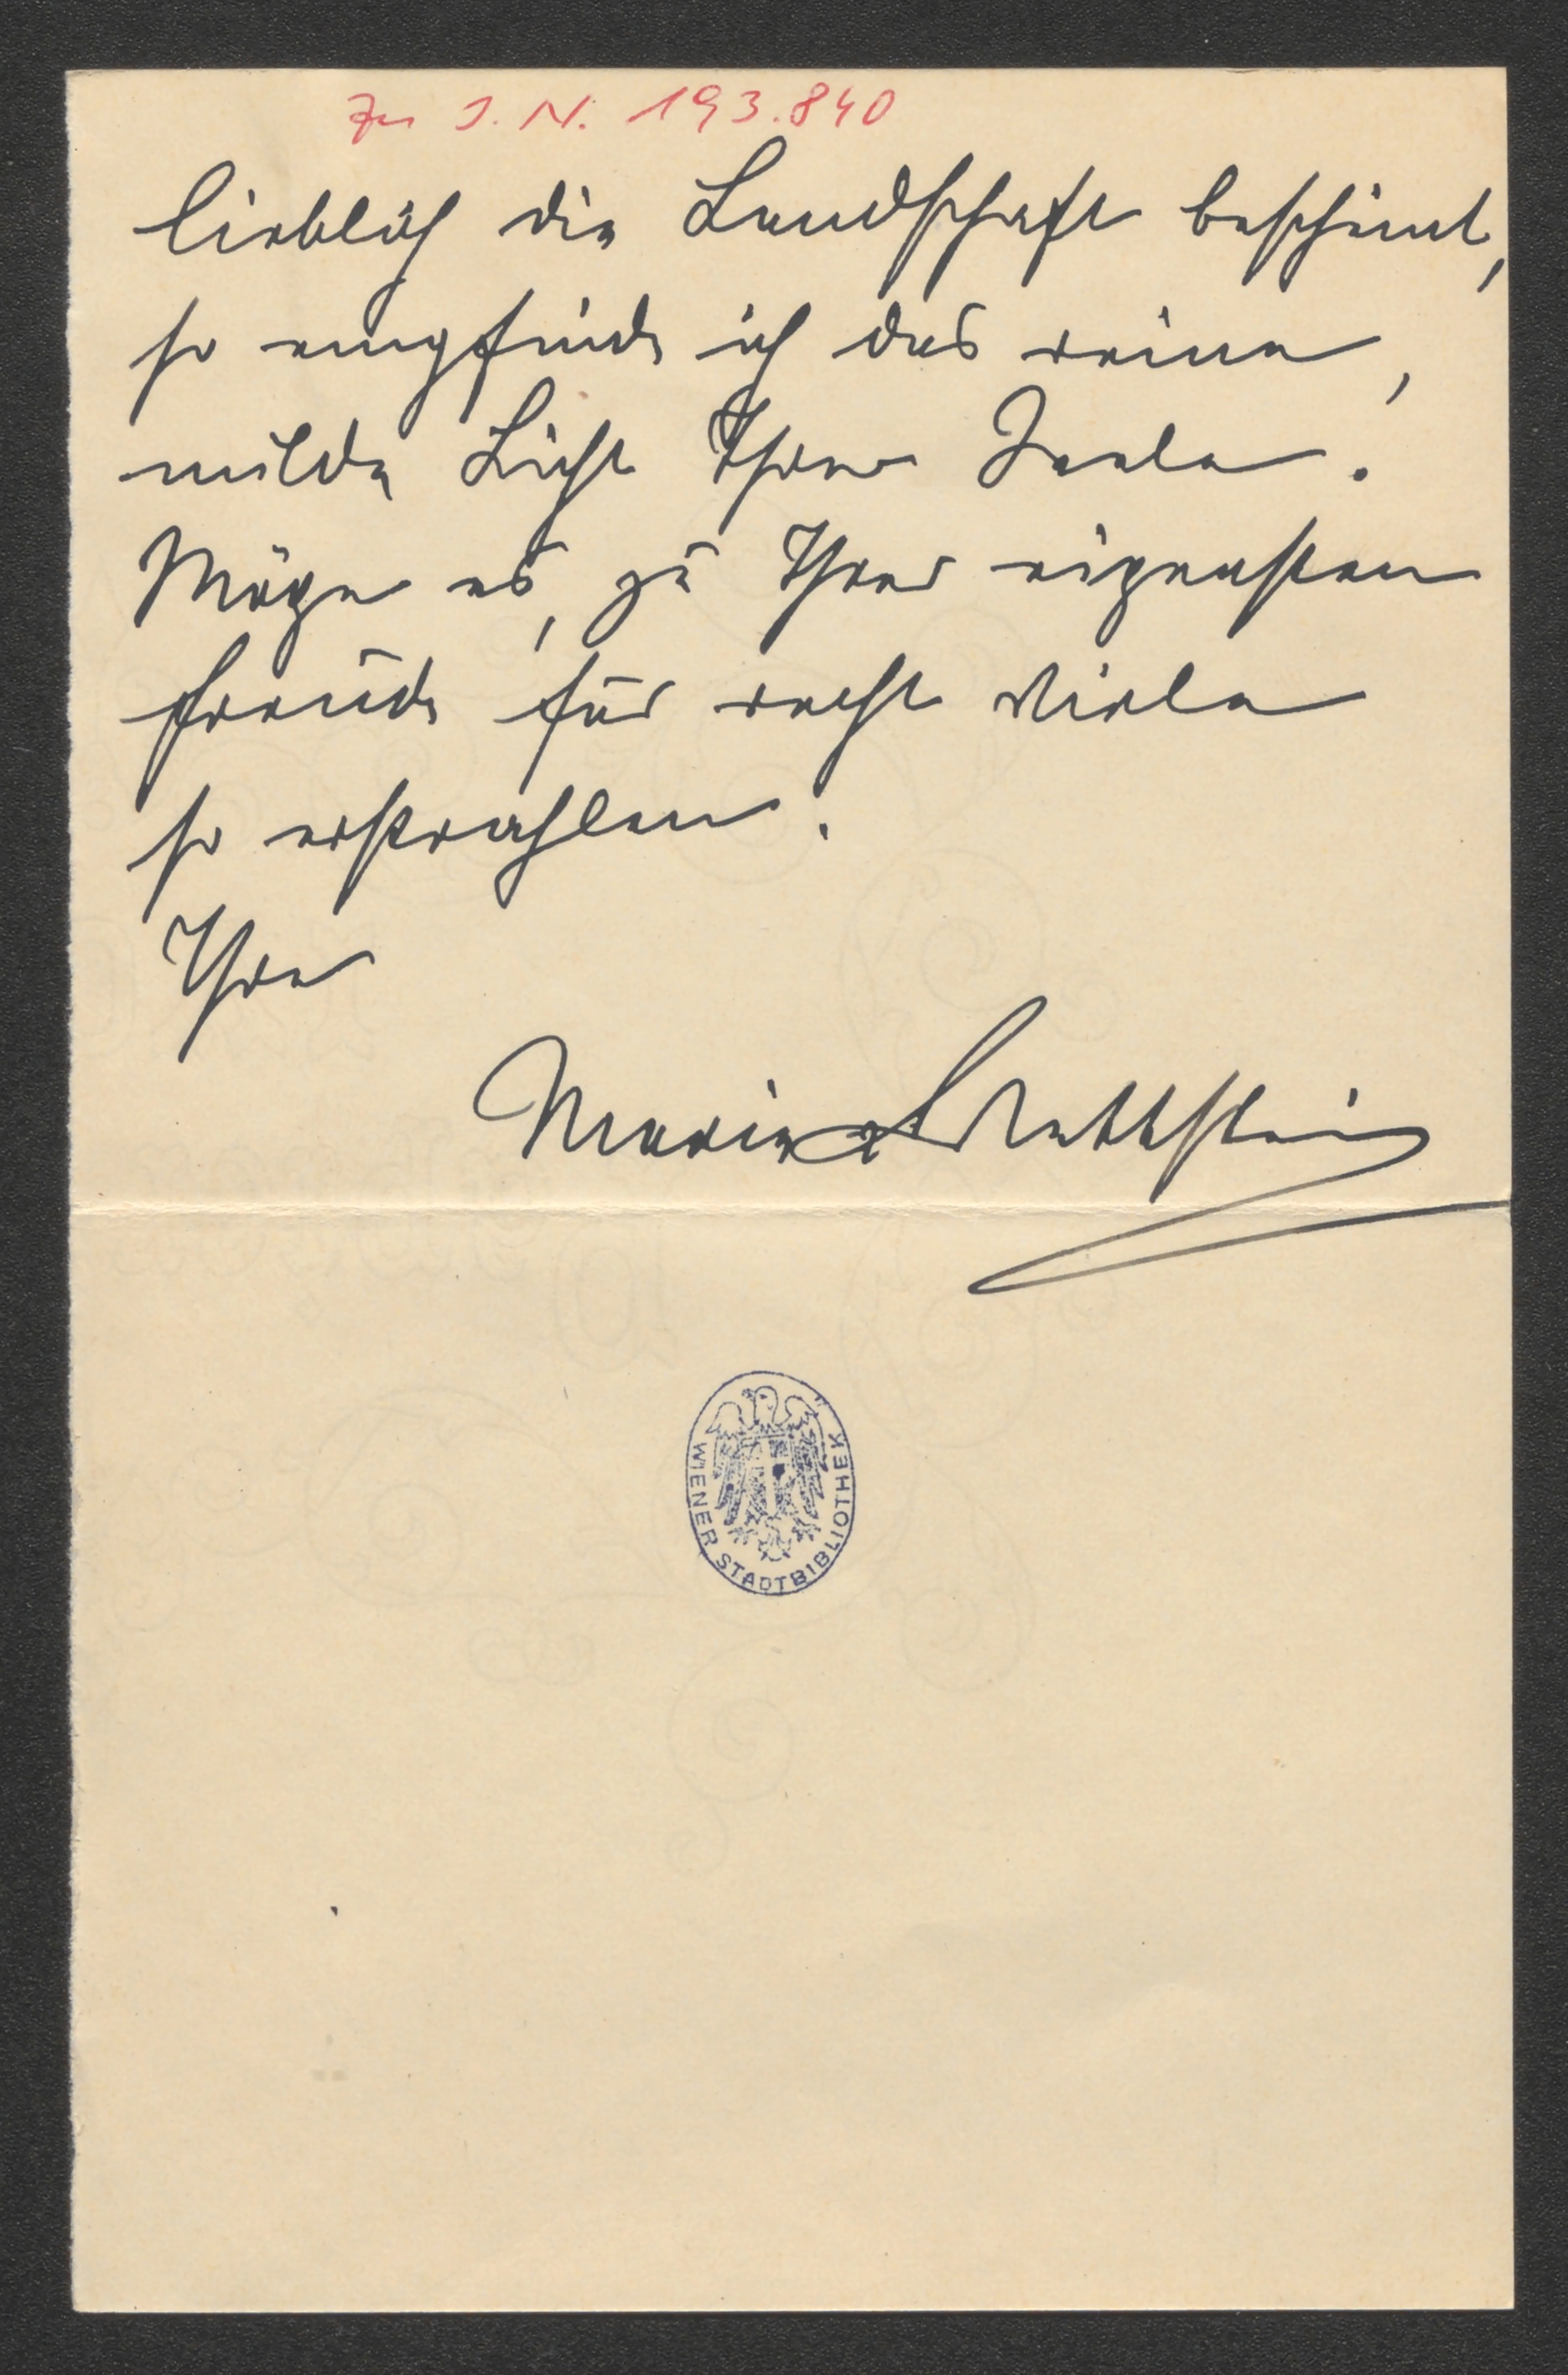 Zu I.N. 193.840
lieblich die Landschaft bescheint,
so empfinde ich das reine,
milde Licht Ihrer Seele.
Möge es, zu Ihrer eigensten
Freude für recht Viele
so erstrahlen!
Ihre
Maria
WIENER STADTBIBLIOTHEK